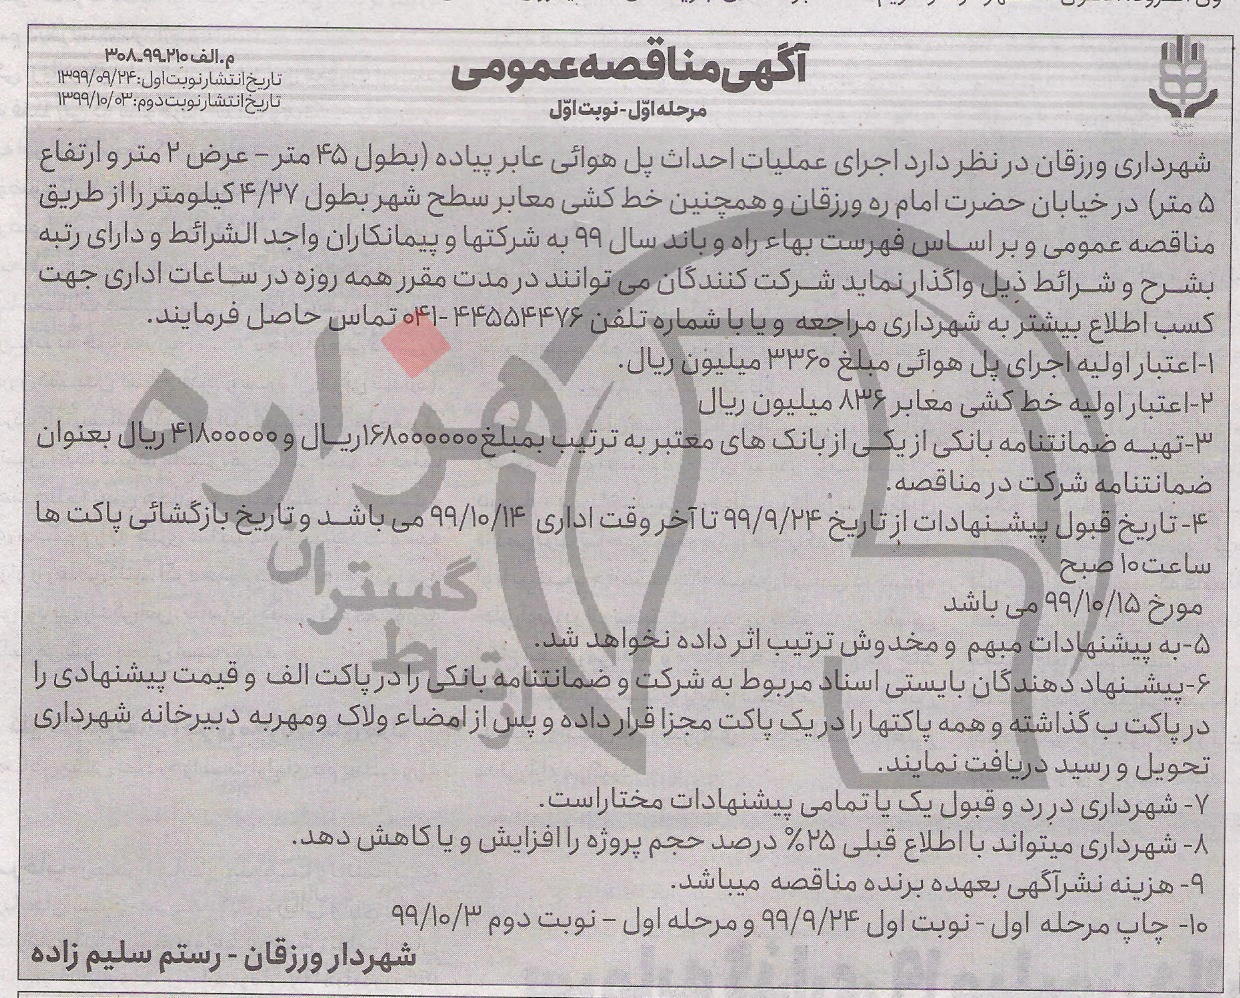 آگهی مناقصه عمومی
مرحله اوّل - نوبت اوّل
م.الف ۲۱۰-۹۹-۳۰۸
تاریخ انتشار نوبت اول: ۱۳۹۹/۰۹/۲۴
تاریخ انتشار نوبت دوم: ۱۳۹۹/۱۰/۰۳
شهرداری ورزقان در نظر دارد اجرای عملیات احداث پل هوائی عابر پیاده (بطول ۴۵ متر – عرض ۲ متر و ارتفاع
۵ متر) در خیابان حضرت امام ره ورزقان و همچنین خط کشی معابر سطح شهر بطول ۴/۲۷ کیلومتر را از طریق
مناقصه عمومی و بر اساس فهرست بهاء راه و باند سال ۹۹ به شرکتها و پیمانکاران واجد الشرائط و دارای رتبه
بشرح و شرائط ذیل واگذار نماید شرکت کنندگان می توانند در مدت مقرر همه روزه در ساعات اداری جهت
کسب اطلاع بیشتر به شهرداری مراجعه و یا با شماره تلفن ۴۴۵۵۴۴۷۶ -۰۴۱ تماس حاصل فرمایند.
۱-اعتبار اولیه اجرای پل هوائی مبلغ ۳۳۶۰ میلیون ریال.
۲-اعتبار اولیه خط کشی معابر ۸۳۶ میلیون ریال
۳-تهیه ضمانتنامه بانکی از یکی از بانک های معتبر به ترتیب بمبلغ ۱۶۸۰۰۰۰۰۰ریال و ۴۱۸۰۰۰۰۰ ریال بعنوان
ضمانتنامه شرکت در مناقصه.
۴-تاریخ قبول پیشنهادات از تاریخ ۹۹/۹/۲۴ تا آخر وقت اداری ۹۹/۱۰/۱۴ می باشد و تاریخ بازگشائی پاکت ها
ساعت ۱۰ صبح
مورخ ۹۹/۱۰/۱۵ می باشد
۵-به پیشنهادات مبهم و مخدوش ترتیب اثر داده نخواهد شد.
۶-پیشنهاد دهندگان بایستی اسناد مربوط به شرکت و ضمانتنامه بانکی را در پاکت الف و قیمت پیشنهادی را
در پاکت ب گذاشته و همه پاکتها را در یک پاکت مجزا قرار داده و پس از امضاء ولاک ومهربه دبیرخانه شهرداری
تحویل و رسید دریافت نمایند.
۷- شهرداری در رد و قبول یک یا تمامی پیشنهادات مختاراست.
۸- شهرداری میتواند با اطلاع قبلی ۲۵% درصد حجم پروژه را افزایش و یا کاهش دهد.
۹- هزینه نشرآگهی بعهده برنده مناقصه میباشد.
۱۰- چاپ مرحله اول - نوبت اول ۹۹/۹/۲۴ و مرحله اول – نوبت دوم ۹۹/۱۰/۳
شهردار ورزقان - رستم سلیم زاده
هزاره
گستران
ارتباط